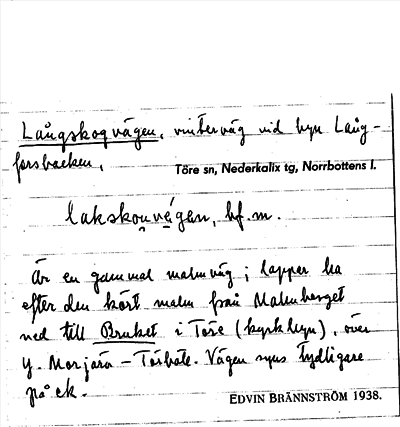 Långskogvägen, vinterväg vid byn Lång-
forsbacken,
Töre sn, Nederkalix tg, Norrbottens l.
bf. m.
Är en gammal malmväg; lapper ha
efter den kört malm från Malmberget
ned till Bruket i Töre (kyrkbyn), över
Y. Morjärv - Törböle. Vägen syns tydligare
på ek.
EDVIN BRÄNNSTRÖM 1938.